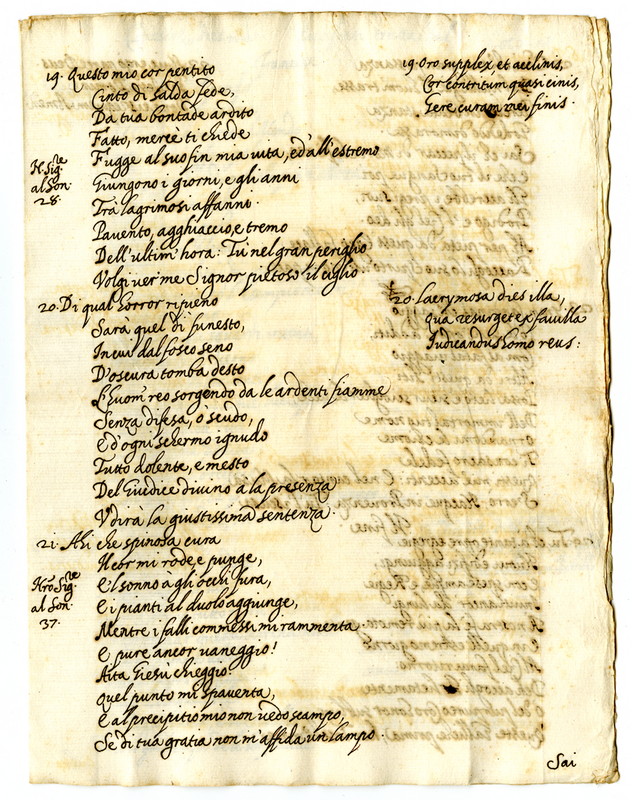 19. Questo mio cor pentito
Cinto di salda fede,
Da tua bontade ardito
Fatto, mercè ti chede
Fugge al suo fin mia vita, ed'all'estremo
Giungono i giorni, e gli anni
Trà lagrimosi affanni.
Pavento, agghiaccio, e tremo
Dell'ultim'hora: Tù nel gran periglio
Volgi ver me Signor pietoso il ciglio
al Son.
28.
19. Oro supplex et acclinis,
Cor contritum quasi cinis,
Gere curam mei finis.
20. Di qual horror ripieno
Sarà quel dì funesto,
In cui dal fosco seno
D'oscura tomba desto
L'huom reo sorgendo da le ardenti fiamme
Senza difesa, ò scudo,
E d'ogni schermo ignudo
Tutto dolente, e mesto
Del Giudice divino a la presenza
Vdirà la giustissima sentenza.
20. Lacrymosa dies illa,
Qua resurget ex favilla
Iudicandus homo reus:
21. Ahi che spinosa cura
Il cor mi rode, e punge,
E'l sonno a gli occhi fura,
E i pianti al duolo aggiunge,
Mentre i falli commessi mi rammenta
E pure ancor vaneggio!
Aita Giesù cheggio.
Quel punto mi spaventa,
E al precipitio mio non vedo scampo,
Se di tua gratia non m'affida un lampo.
al Son.
37.
Sai